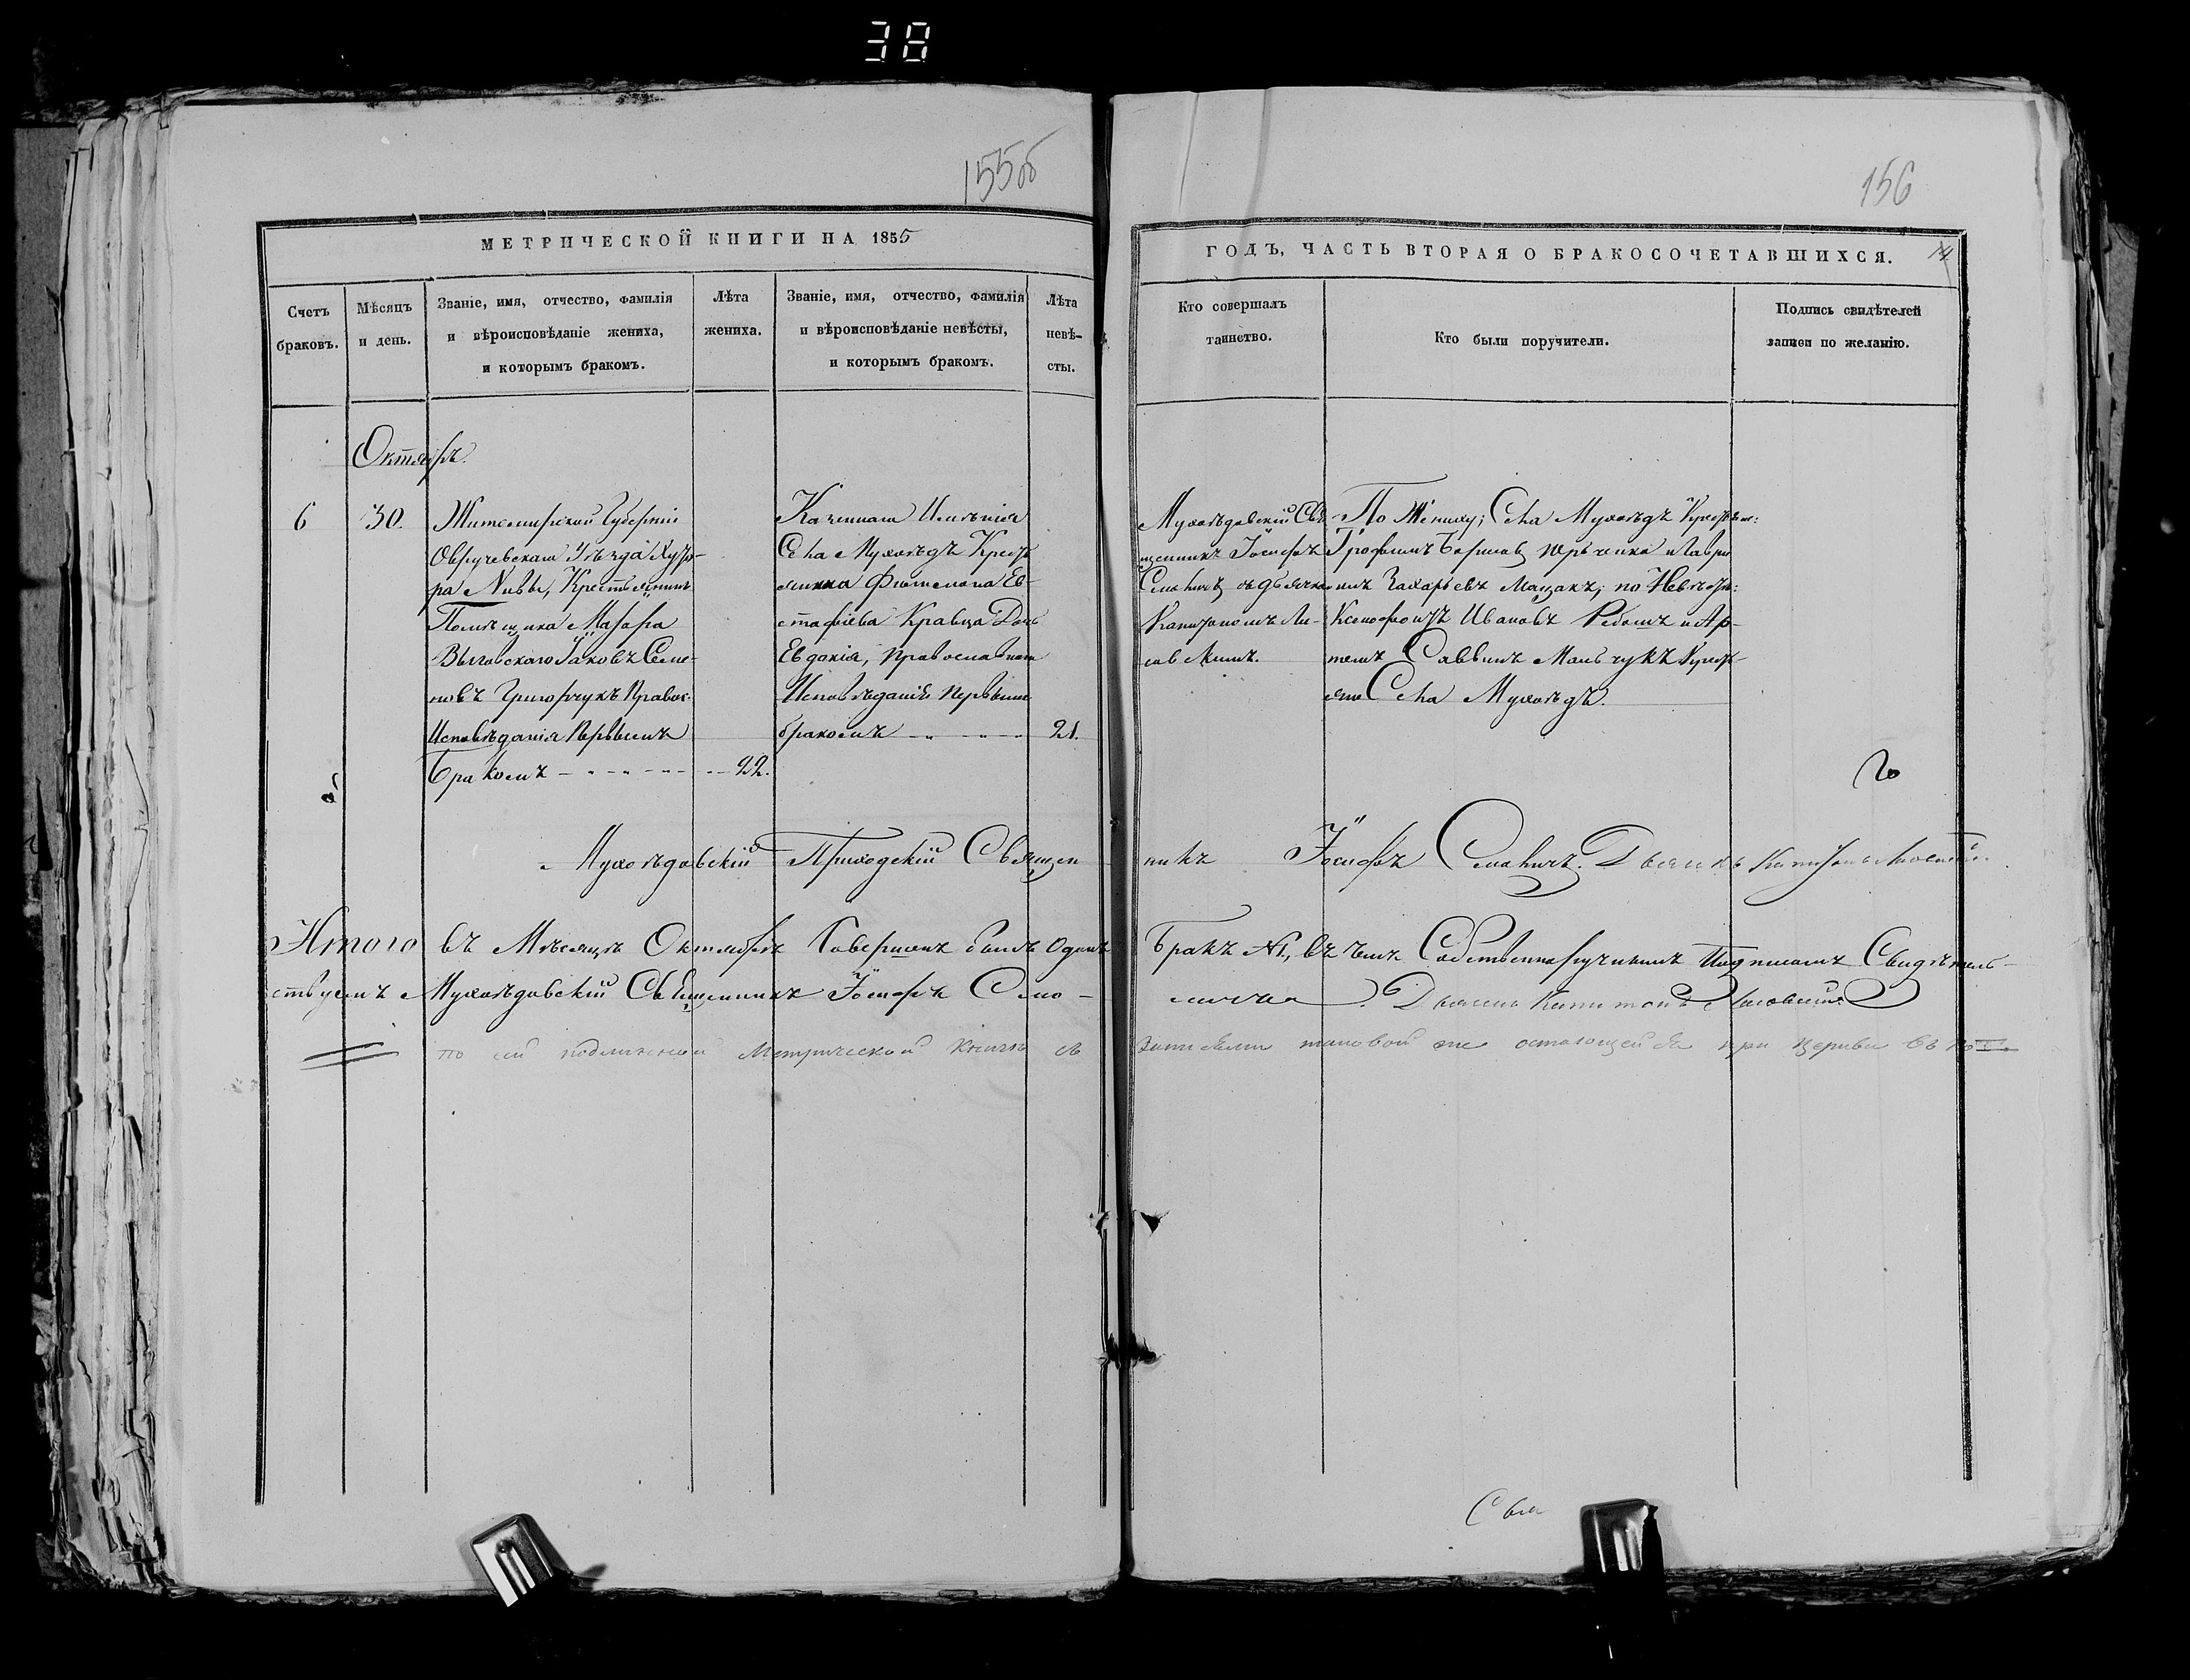 38
155об
156
МЕТРИЧЕСКОЙ КНИГИ НА 1855
ГОДЪ, ЧАСТЬ ВТОРАЯ О БРАКОСОЧЕТАВШИХСЯ.
Счетъ
браковъ.
Мѣсяцъ
и день.
Званіе, имя, отчество, фамилія
и вѣроисповѣданіе жениха,
и которымъ бракомъ.
Лѣта
жениха.
Званіе, имя, отчество, фамилія
и вѣроисповѣданіе невѣсты,
и которымъ бракомъ.
Лѣта
невѣ-
сты.
Кто совершалъ
таинство.
Кто были поручители.
Подпись свидѣтелей
записи по желанію.
Октябрь.
6
30.
Житомирской Губерніи
Овручевскаго Уѣзда Хуто-
ра Нивы, Крестьянинъ
Помѣщика
Выговскаго Іаковъ Семе-
новъ Григорчукъ Правос:
Исповѣданія Первымъ
Бракомъ
22.
Казеннаго Имѣнія
Села Мухоѣдъ Крест
янина Филимона Ев-
стафіева Кравца Дочь
Евдокія, православнаго
Исповѣданія первымъ
бракомъ
21.
Мухоѣдовскій Свя
щенникъ Іосифъ
съ дьячкомъ
Капитономъ Ли-
По Жениху; Села Мухоѣдъ Крестьян:
Трофимъ и Гаври
илъ Захарьевъ по Невѣстѣ:
Ксенофонтъ Ивановъ и Ар-
темъ Саввинъ Крест-
яне Села Мухоѣдъ.
Мухоѣдовскій Приходскій Священ
никъ Іосифъ Дьячекъ Капитонъ
Итого въ Мѣсяцѣ Октябрѣ Совершенъ былъ Одинъ
Бракъ №1, въ чемъ Собственноручнымъ Подписомъ Свидѣтель-
ствуемъ Мухоѣдовскій Священникъ Іосифъ
Дьячекъ Капитонъ
по сей подлинной Метрической книги съ
таковой же остающейся при церкви
Свя